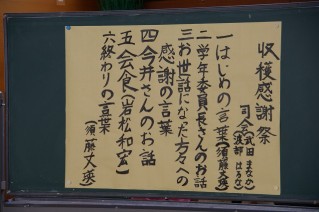 収穫感謝祭
司会(武田 まなの
渡部 はるな)
一はじめの言葉(須藤丈瑛)
二学年委員長さんのお話
三お世話になった方々への
感謝の言葉
四今井さんのお話
五会食(岩松和宏)
六終わりの言葉
(須藤丈瑛)